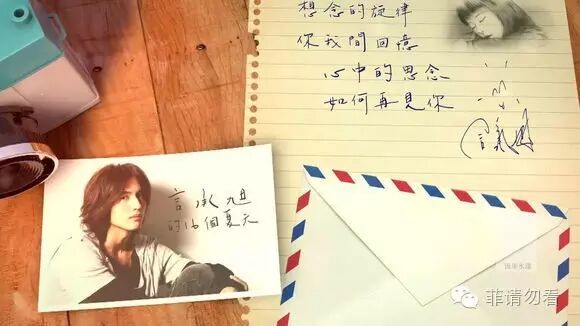 想念的旋律
你我間回憶
心中的思念
如何再見你
言承旭
的16個夏天
菲请勿看